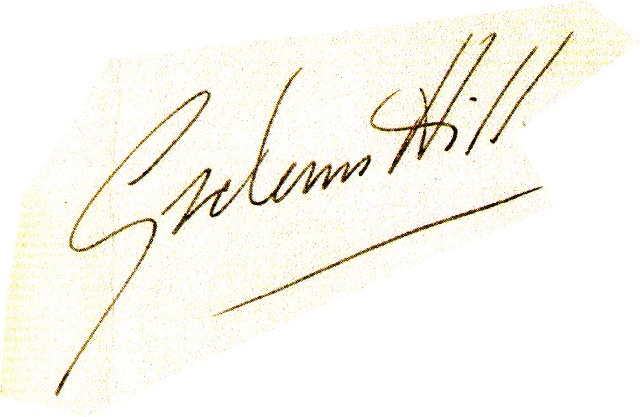 Graham Hill